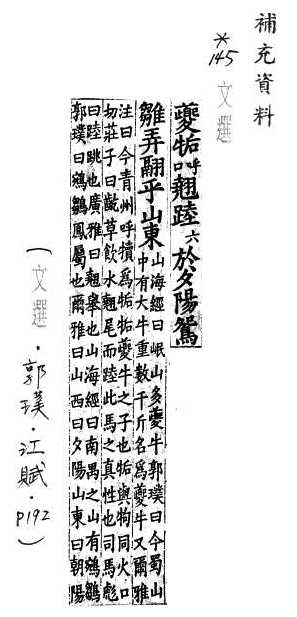 補充資料
*145 文選
夔㸸呼口翹踛六於夕陽鴛
雛弄翮乎山東山海經曰岷山多夔牛郭璞曰今蜀山
中有大牛重數千斤名為夔牛又爾雅
注曰今青州呼犢為㸸㸸夔牛之子也㸸與同火口
切莊子曰齕草飲水翹尾而踛此馬之真性也司馬彪
曰踛眺也廣雅曰翹舉也山海經曰南禺之山有鵷鶵
郭璞曰鵷鶵鳳屬也爾雅曰山西曰夕陽山東曰朝陽
(文選・郭璞・江賦・P192)